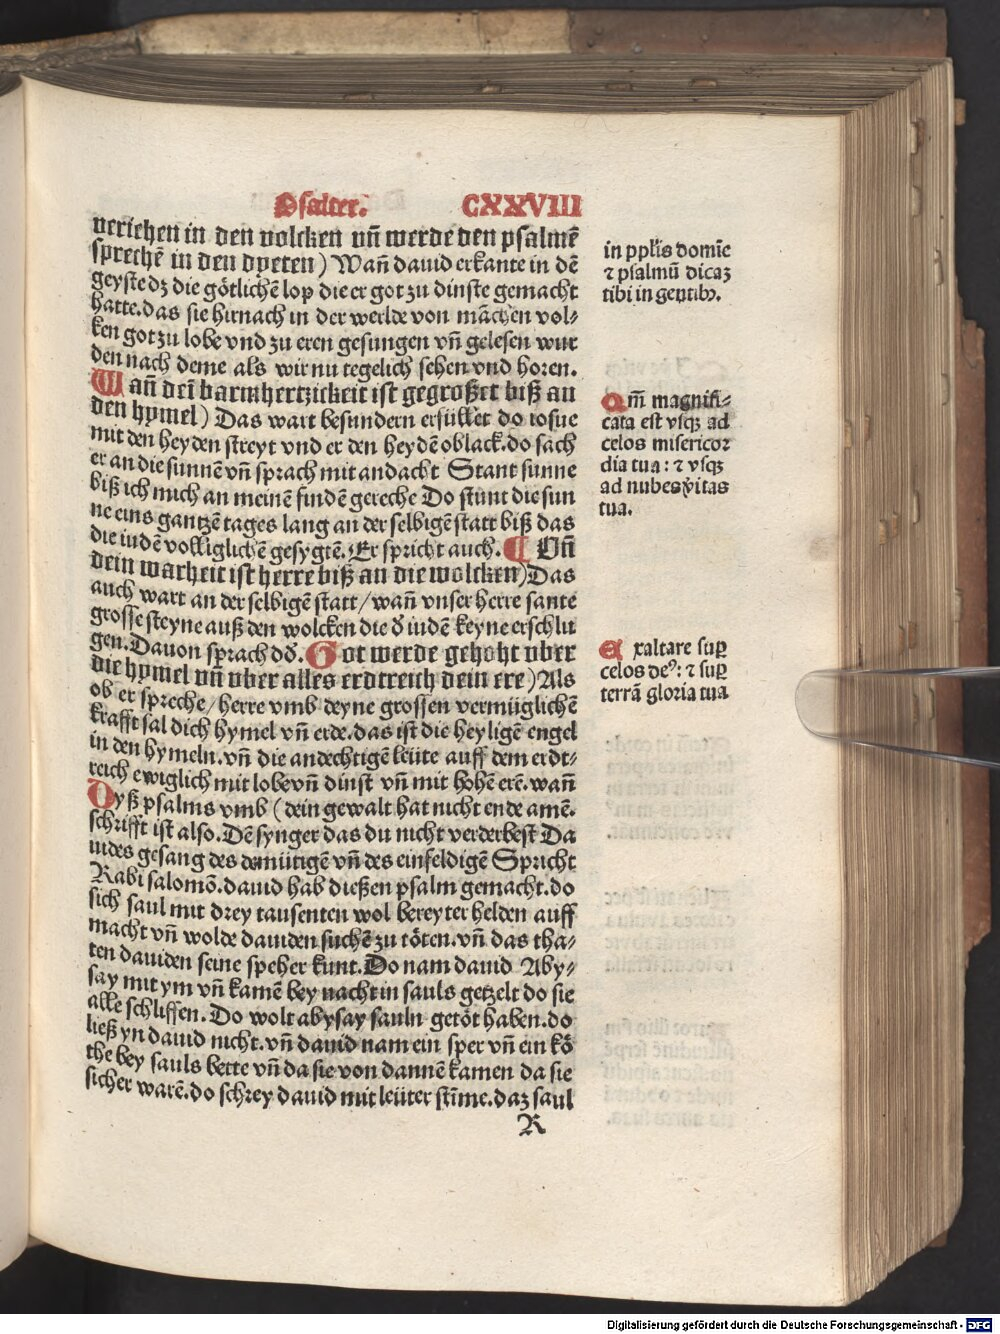 Psalter. CXXVIII
veriehen in den volcken vñ werde den psalmē
sprechē in den dyeten) Wañ dauid erkante in dē
geyste dz die götlichē lop die er got zu dinste gemacht
hatte. das sie hirnach in der werlde von mächen vol⸗
ken got zu lobe vnd zu eren gesungen vñ gelesen wur
den nach deme als wir nu tegelich sehen vnd horen.
Wañ dein barmhertzickeit ist gegroßet biß an
den hymel) Das wart besundern erfüllet do iosue
mit den heyden streyt vnd er den heydē oblack. do sach
er an die sunnē vñ sprach mit andacht Stant sunne
biß ich mich an meinē findē gereche Do stunt die sun
ne eins gantzē tages lang an der selbigē statt biß das
die iudē volliglichē gesygtē. Er spricht auch. ¶ Vñ
dein warheit ist herre biß an die wolcken) Das
auch wart an der selbigē statt/ wañ vnser herre sante
grosse steyne auß den wolcken die ð iudē keyne erschlu
gen. Dauon sprach dð. Got werde gehoht vber
die hymel vñ vber alles erdtreich dein ere) Als
ob er spreche/ herre vmb deyne grossen vermüglichē
krafft sal dich hymel vñ erde. das ist die heyligē engel
in den hymeln. vñ die andechtigē leüte auff dem erdt⸗
reich ewiglich mit lobe vñ dinst vñ mit hohē erē. wañ
Dyß psalms vmb ( dein gewalt hat nicht ende amē.
schrifft ist also. Dē synger das du nicht verderbest Da
uides gesang des demütigē vñ des einfeldigē Spricht
Rabi salomō. dauid hab dießen psalm gemacht. do
sich saul mit drey tausenten wol bereyter helden auff
macht vñ wolde dauiden suchē zu töten. vñ das tha⸗
ten dauiden seine speher kunt. Do nam dauid Aby⸗
say mit ym vñ kamē bey nacht in sauls getzelt do sie
alle schliffen. Do wolt abysay sauln getöt haben. do
ließ yn dauid nicht. vñ dauid nam ein sper vñ ein kö
the bey sauls bette vñ da sie von dannē kamen da sie
sicher warē. do schrey dauid mit leüter stīme. daz saul
R
in ppl̄is domīe
⁊ psalmū dicaz
tibi in gentibꝰ.
Qm̄ magnifi⸗
cata est vsqꝫ ad
celos misericor
dia tua : ⁊ vsqꝫ
ad nubes v̄itas
tua.
Exaltare suꝑ
celos deꝰ: ⁊ suꝑ
terrā gloria tua
Digitalisierung gefördert durch die Deutsche Forschungsgemeinschaft - DFG